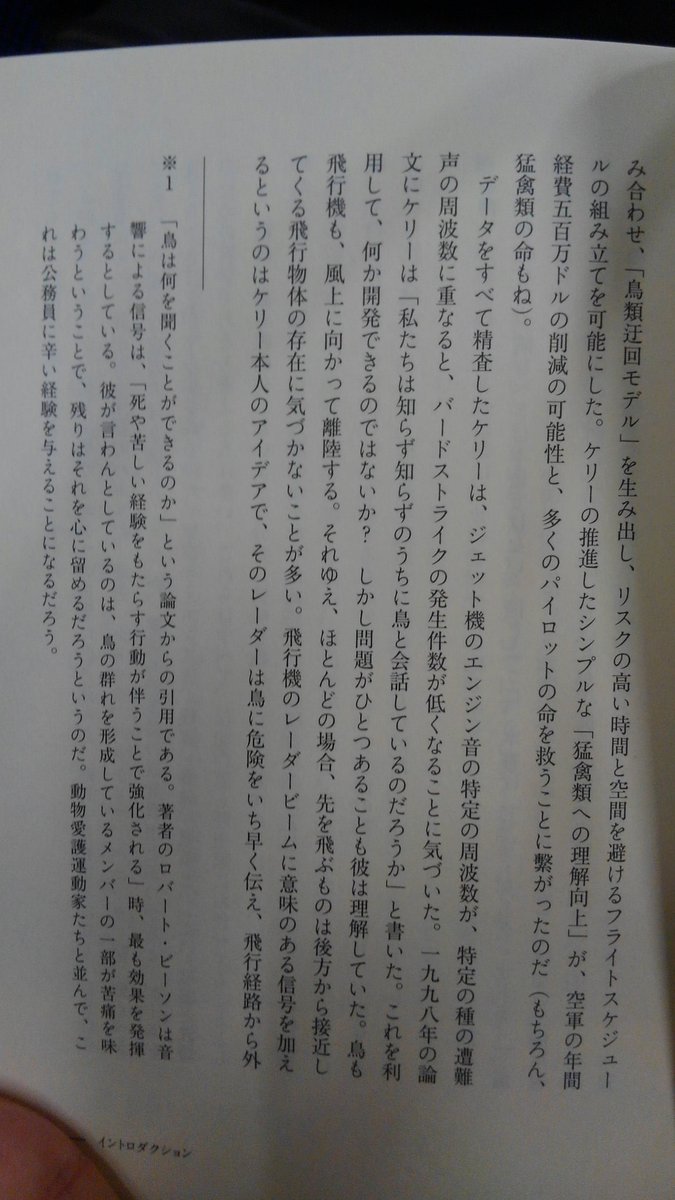 み合わせ、「鳥類迂回モデル」を生み出し、リスクの高い時間と空間を避けるフライトスケジュー
ルの組み立てを可能にした。ケリーの推進したシンプルな「猛禽類への理解向上」が、空軍の年間
経費五百万ドルの削減の可能性と、多くのパイロットの命を救うことに繋がったのだ（もちろん、
猛禽類の命もね）。
データをすべて精査したケリーは、ジェット機のエンジン音の特定の周波数が、特定の種の遭難
声の周波数に重なると、バードストライクの発生件数が低くなることに気づいた。一九九八年の論
文にケリーは「私たちは知らず知らずのうちに鳥と会話しているのだろうか」と書いた。これを利
用して、何か開発できるのではないか？　しかし問題がひとつあることも彼は理解していた。鳥も
飛行機も、風上に向かって離陸する。それゆえ、ほとんどの場合、先を飛ぶものは後方から接近し
てくる飛行物体の存在に気づかないことが多い。飛行機のレーダービームに意味のある信号を加え
るというのはケリー本人のアイデアで、そのレーダーは鳥に危険をいち早く伝え、飛行経路から外
※1　「鳥は何を聞くことができるのか」という論文からの引用である。著者のロバート・ビーソンは音
響による信号は、「死や苦しい経験をもたらす行動が伴うことで強化される」時、最も効果を発揮
するとしている。彼が言わんとしているのは、鳥の群れを形成しているメンバーの一部が苦痛を味
わうということで、残りはそれを心に留めるだろうというのだ。動物愛護運動家たちと並んで、こ
れは公務員に辛い経験を与えることになるだろう。
イントロダクション